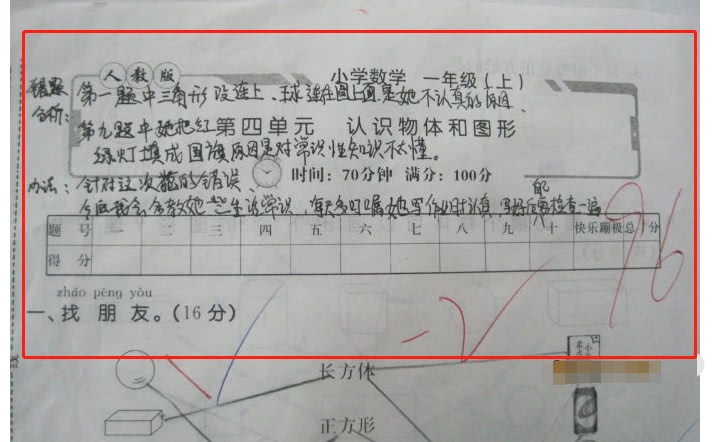 人教版
小学数学 一年级（上）
错题分析：
第一题中三角形没连上、球连在圆上面是她不认真的原因、
第九题中她把红
第四单元 认识物体和图形
绿灯填成国旗原因是对常识性知识不太懂。
时间：70分钟 满分：100分
办法：针对这次犯的错误、
今后我会多教她一些生活常识，每天多叮嘱她写作业时认真，写好后要检查一遍
的
96
题号 一 二 三 四 五 六 七 八 九 十 快乐蹦极 总分
得分
zhǎo péng yǒu
一、找朋友。（16分）
-2
长方体
正方形